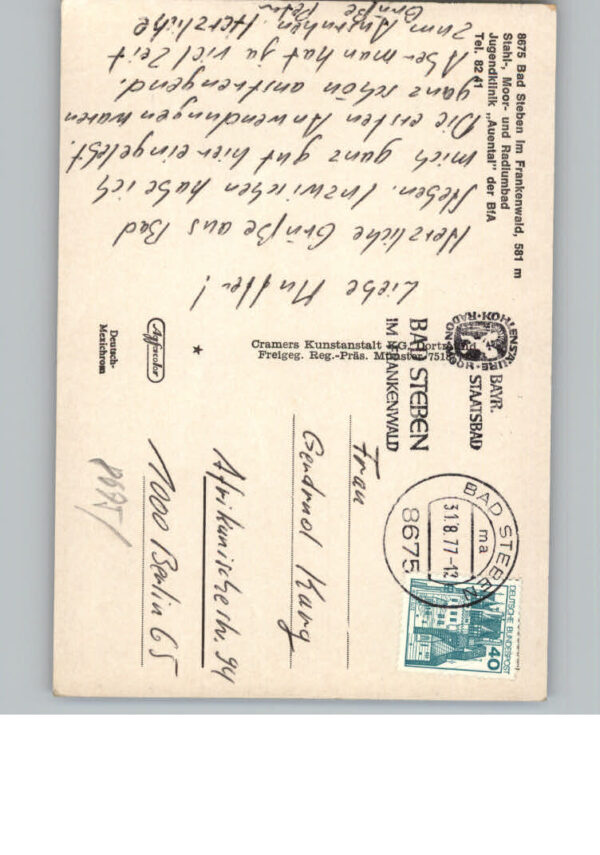 8675 Bad Steben im Frankenwald, 581 m
Stahl-, Moor- und Radiumbad
Jugendklinik „Auental" der BfA
Tel. 82 41
Liebe Mutter!
Herzliche Grüße aus Bad
Steben. Inzwischen habe ich
mich ganz gut hier eingelebt.
Die ersten Anwendungen waren
ganz schön anstrengend.
Aber man hat ja viel Zeit
zum Ausruhen. Herzliche
Grüße Peter
Cramers Kunstanstalt KG, Dortmund
Freigeg. Reg.-Präs. Münster
Agfacolor
Deutsch-
Mexichrom
BAYR.
STAATSBAD
BAD STEBEN
IM FRANKENWALD
BAD STEBEN
ma
31.8.77-12
8675
DEUTSCHE BUNDESPOST
40
Frau
Karg
Afrikanische Str. 94
1000 Berlin 65